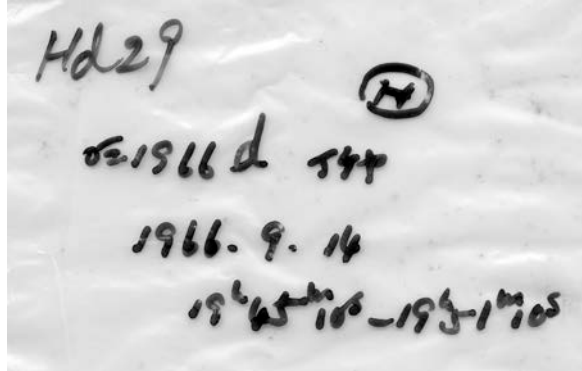 Hd29
1966 d
1966. 9. 14
19ʰ45ᵐ10ˢ - 19ʰ51ᵐ10ˢ